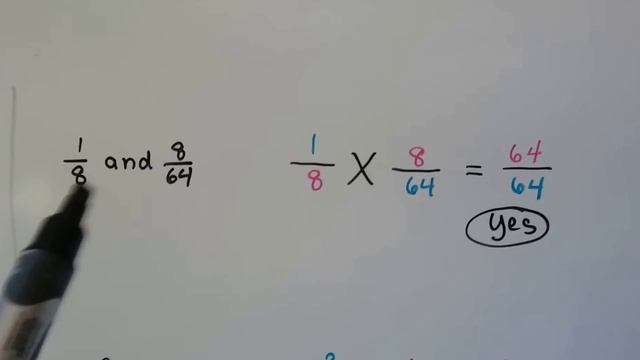 1/8 and 8/64
1/8 X 8/64 = 64/64
yes